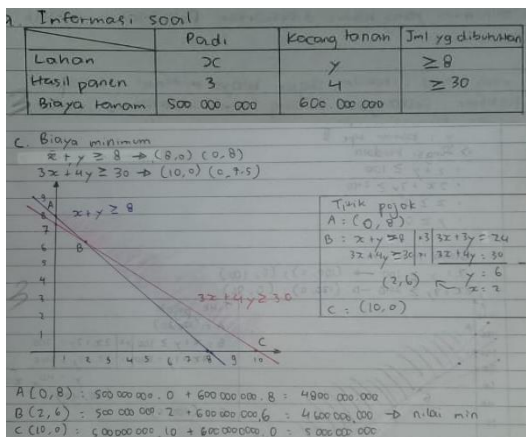 a. Informasi soal
Padi | Kacang tanah | Jml yg dibutuhkan
Lahan | x | y | ≥ 8
Hasil panen | 3 | 4 | ≥ 30
Biaya tanam | 500 000.000 | 600.000.000
C. Biaya minimum
x + y ≥ 8 → (8,0) (0,8)
3x + 4y ≥ 30 → (10,0) (0,7.5)
9
A
8
7
6
5
4
3
2
1
x + y ≥ 8
B
3x + 4y ≥ 30
C
1 2 3 4 5 6 7 8 9 10
Titik pojok
A : (0,8)
B : x + y = 8 | ×3 | 3x + 3y = 24
3x + 4y = 30 | ×1 | 3x + 4y = 30
(2,6) ← y = 6
x = 2
C : (10,0)
A (0,8) : 500 000 000 . 0 + 600 000 000 . 8 = 4800 000.000
B (2,6) = 500 000 000 . 2 + 600 000 000 . 6 = 4 600 000,000 → nilai min
C (10,0) : 500000000 . 10 + 600 000000 . 0 = 5 000 000 000